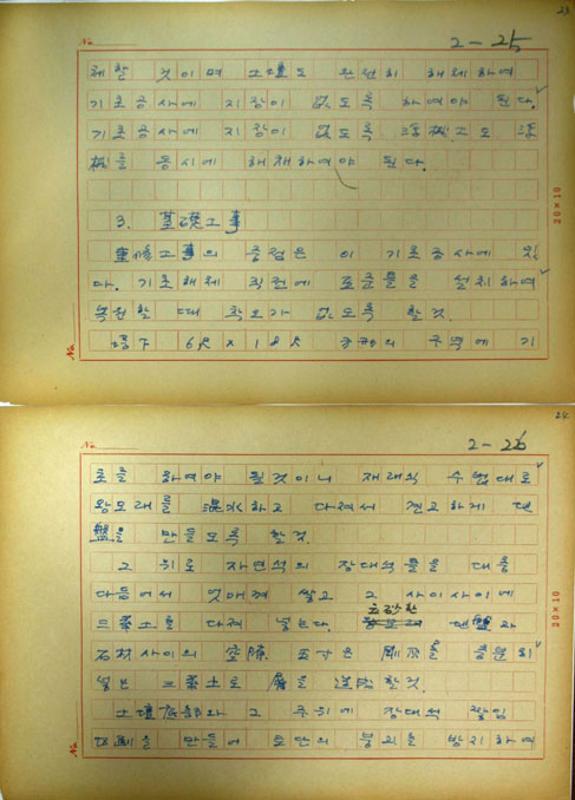 23
No.
2-25
체할 것이며 土壇도 완전히 해체하여
기초공사에 지장이 없도록 하여야 된다.
기초공사에 지장이 없도록
를 동시에 해체하여야 된다.
3. 基礎工事
重修工事의 중점은 이 기초공사에 있
다. 기초해체 직전에 표준틀을 설치하여
복원할 때 착오가 없도록 할것.
塔下 6尺×18尺 구역에 기
No.
20×10
24
No.
2-26
초를 하여야 될것이니 재래식 수법대로
왕모래를 混水하고 다져서 견고하게 지
盤을 만들도록 할것.
그 위로 자연석의 장대석들을 대충
다듬어서 엇매겨 쌓고 그 사이사이에
土를 다져 넣는다.
石材사이의 空隙 충분히
넣은 土로 할것.
土壇 와 그 주위에 장대석
을 만들어 토단의 붕괴를 방지하여
No.
20×10